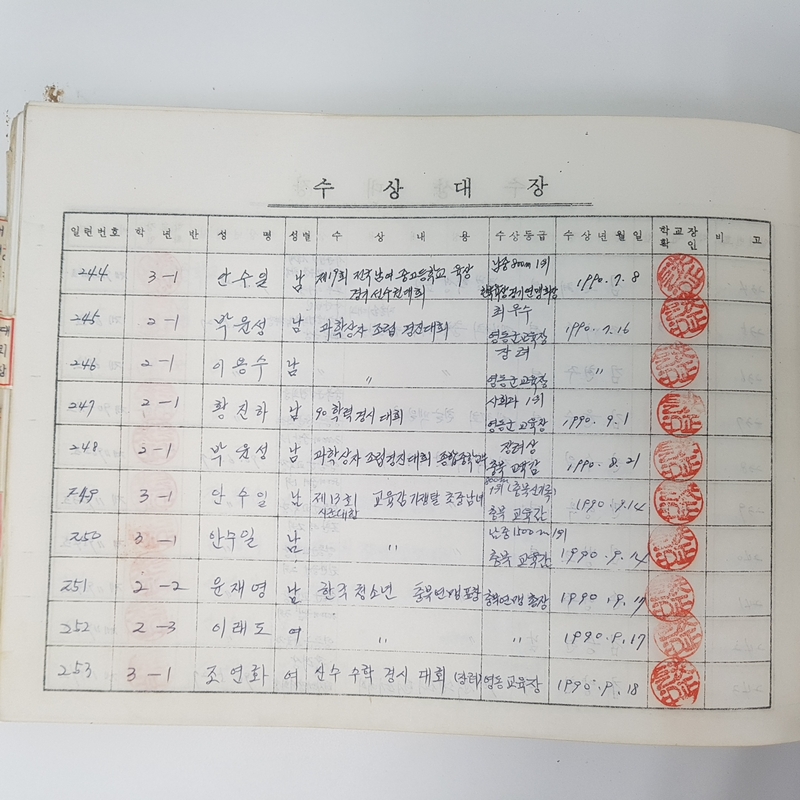 수 상 대 장
일련번호 학 년 반 성 명 성별 수 상 내 용 수상등급 수 상 년 월 일 학교장 확 인 비 고
244 3-1 안수일 남 제19회 전국남여 중고등학교 육상 경기 선수권대회 남중 800m 1위 1990. 7. 8
245 2-1 박윤성 남 과학상자 조립 경진대회 최우수 영동군교육장 1990. 7. 16
246 2-1 이용수 남 〃 장려 영동군교육장 〃
247 2-1 황진하 남 90 학력경시대회 사회과 1위 영동군교육장 1990. 9. 1
248 2-1 박윤성 남 과학상자 조립경진대회 장려상 충북교육감 1990. 8. 21
249 3-1 안수일 남 제13회 교육감기 초중남녀 1위 충북 교육감 1990. 9. 14
250 3-1 안수일 남 〃 남중 1500m 1위 충북 교육감 1990. 9. 14
251 2-2 윤재영 남 한국청소년 충북연맹 표창 충북연맹총장 1990. 9. 17
252 2-3 이래도 여 〃 〃 1990. 9. 17
253 3-1 조연화 여 산수 수학 경시 대회 (장려) 영동교육장 1990. 9. 18